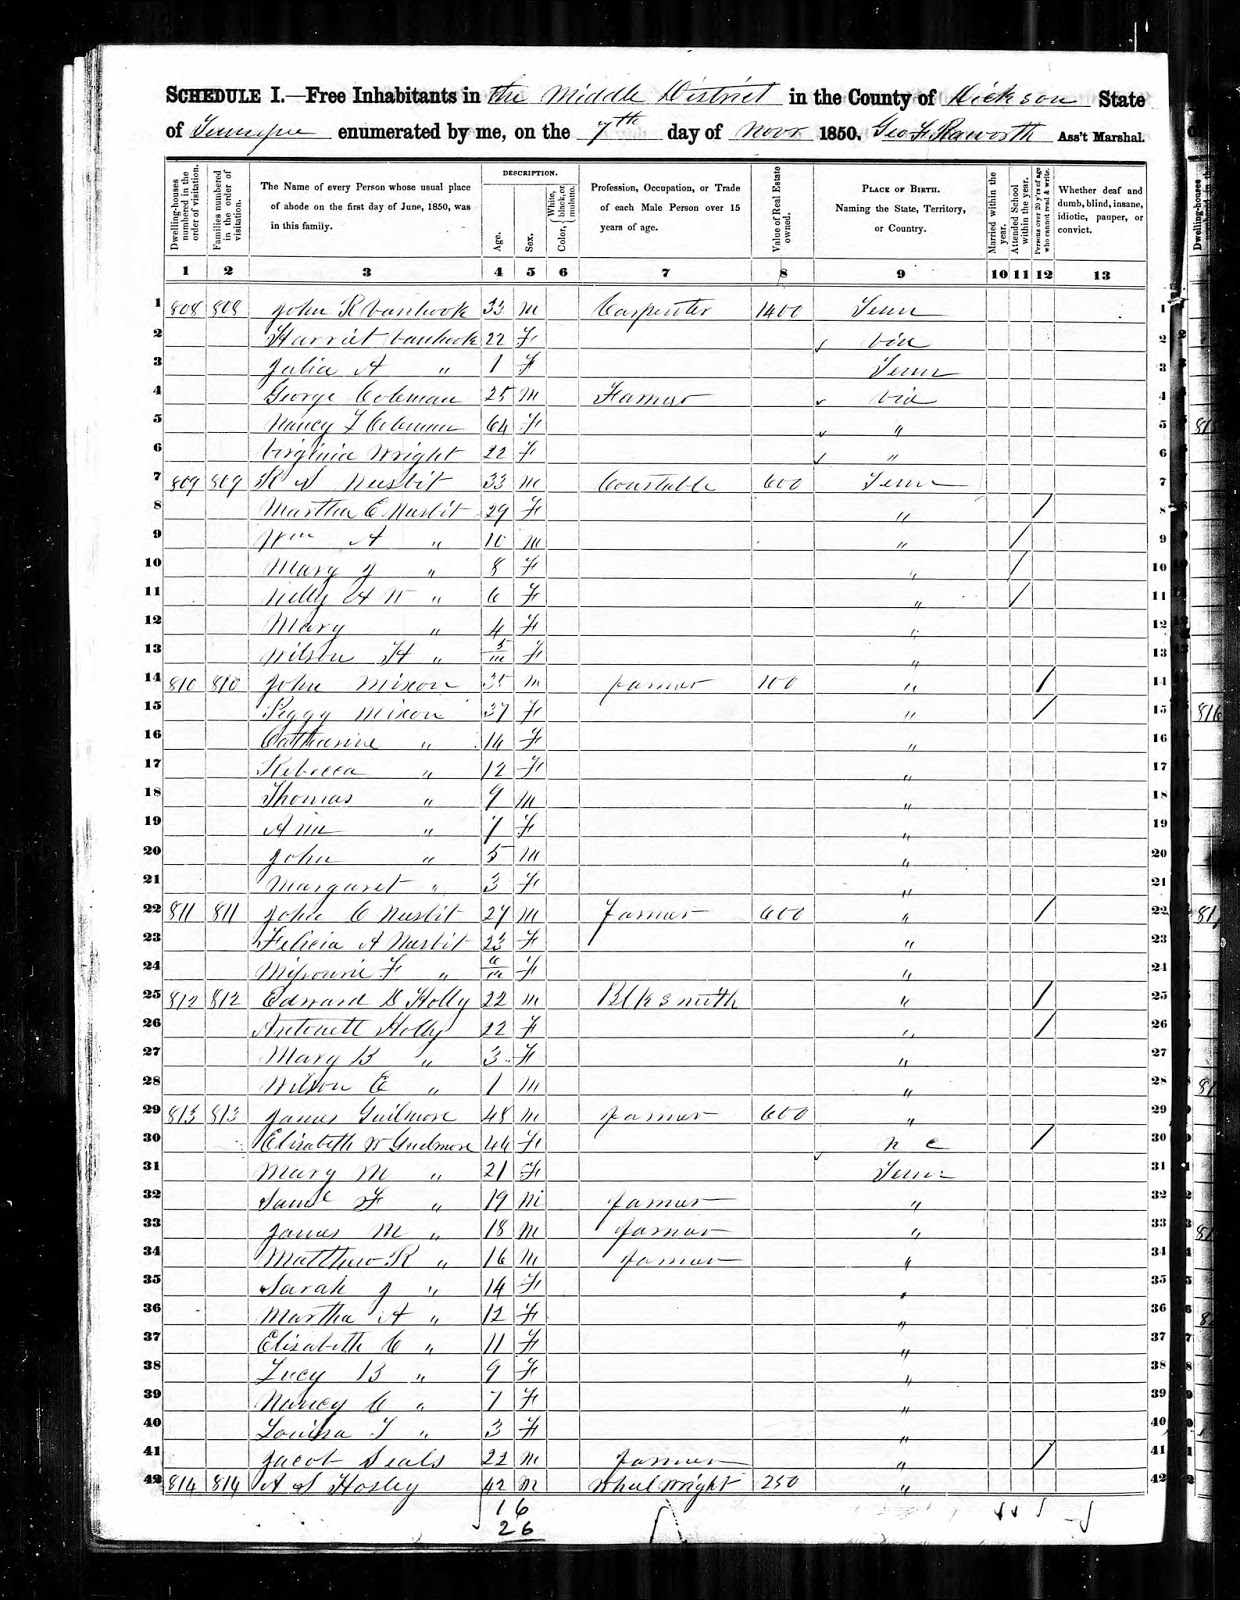 SCHEDULE I.—Free Inhabitants in the Middle District in the County of Dickson State
of Tennessee enumerated by me, on the 7th day of Novr 1850. Geo F Raworth Ass't Marshal.
Dwelling-houses numbered in the order of visitation.
Families numbered in the order of visitation.
The Name of every Person whose usual place of abode on the first day of June, 1850, was in this family.
DESCRIPTION.
Age.
Sex.
Color, { White, black, or mulatto.
Profession, Occupation, or Trade of each Male Person over 15 years of age.
Value of Real Estate owned.
PLACE OF BIRTH. Naming the State, Territory, or Country.
Married within the year.
Attended School within the year.
Persons over 20 y'rs of age who cannot read & write.
Whether deaf and dumb, blind, insane, idiotic, pauper, or convict.
1 2 3 4 5 6 7 8 9 10 11 12 13
1 808 808 John R Vanhook 33 m Carpenter 1400 Tenn 1
2 Harriet Vanhook 22 F Via 2
3 Julia A " 1 F Tenn 3
4 George Coleman 25 m Farmer Via 4
5 Nancy L Coleman 64 F " 5
6 Virginia Wright 22 F " 6
7 809 809 R S Nesbit 33 m Constable 600 Tenn 7
8 Martha E Nesbit 29 F " / 8
9 Wm A " 10 m " / 9
10 Mary J " 8 F " / 10
11 Nelly A W " 6 F " / 11
12 Mary " 4 F " 12
13 Wilson H " 5/m F " 13
14 810 810 John Mixon 35 m farmer 100 " / 14
15 Peggy Mixon 37 F " / 15
16 Catharine " 14 F " 16
17 Rebecca " 12 F " 17
18 Thomas " 9 m " 18
19 Ann " 7 F " 19
20 John " 5 m " 20
21 Margaret " 3 F " 21
22 811 811 John C Nesbit 27 m farmer 600 " / 22
23 Felicia A Nesbit 23 F " 23
24 Missourie F " F " 24
25 812 812 Edward D Holly 22 m Blksmith " / 25
26 Antonett Holly 22 F " / 26
27 Mary B " 3 F " 27
28 Wilson E " 1 m " 28
29 813 813 James Guilmore 48 m farmer 600 " 29
30 Elizabeth W Guilmore 44 F N C / 30
31 Mary M " 21 F Tenn 31
32 Saml F " 19 m farmer " 32
33 James M " 18 m farmer " 33
34 Matthew R " 16 m farmer " 34
35 Sarah J " 14 F " 35
36 Martha A " 12 F " 36
37 Elisabeth C " 11 F " 37
38 Lucy B " 9 F " 38
39 Nancy C " 7 F " 39
40 Louisa T " 3 F " 40
41 Jacob Seals 22 m farmer " / 41
42 814 814 A S Hosley 42 m Wheelwright 250 " 42
16
26